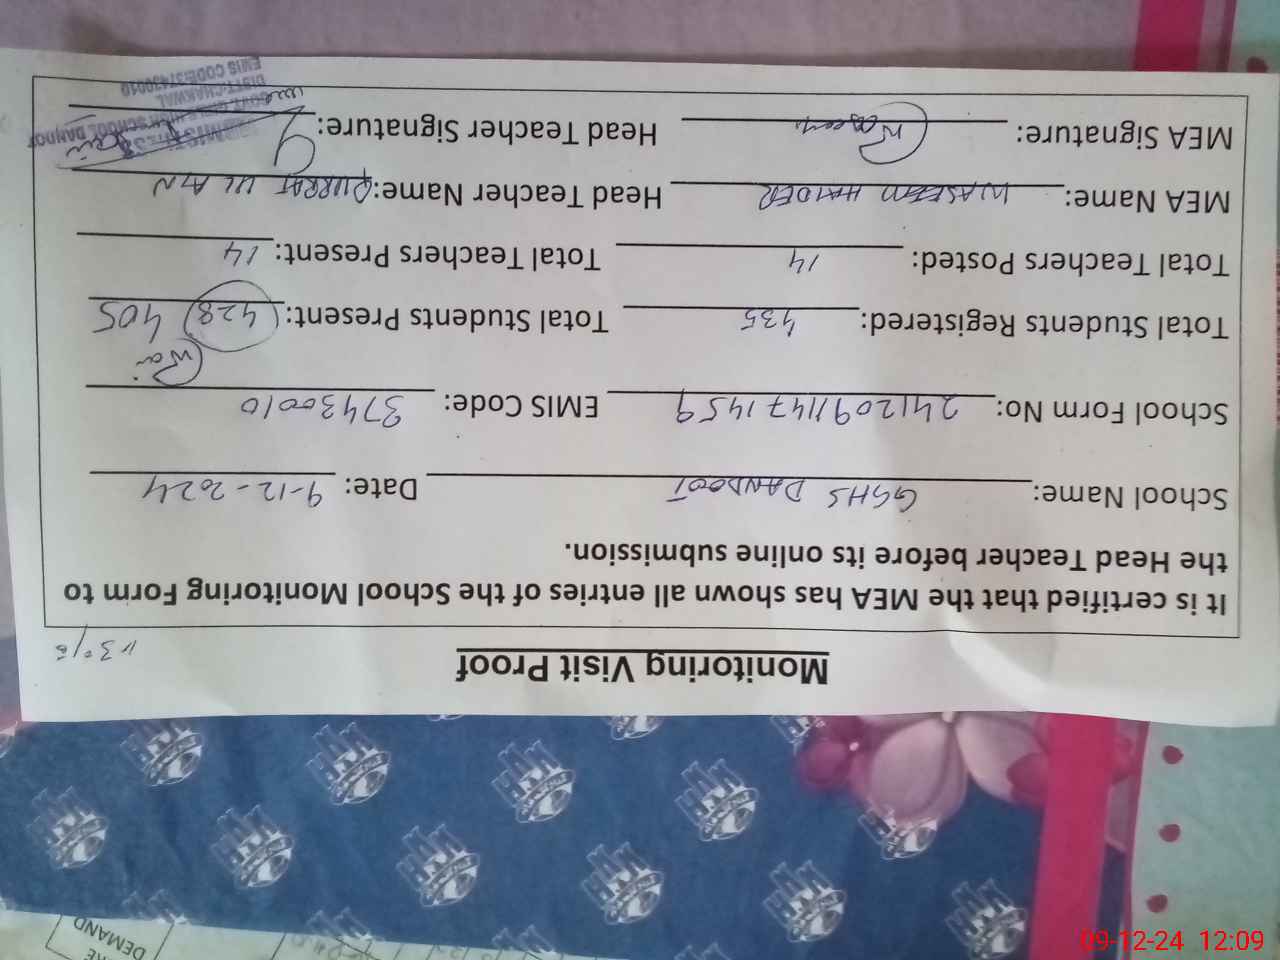 Monitoring Visit Proof
It is certified that the MEA has shown all entries of the School Monitoring Form to
the Head Teacher before its online submission.
School Name: GGHS DANDOOT Date: 9-12-2024
School Form No: 24120911471459 EMIS Code: 37430010
Total Students Registered: 435 Total Students Present: 428 405
Total Teachers Posted: 14 Total Teachers Present: 14
MEA Name: WASEEM HAIDER Head Teacher Name: QURRAT UL AIN
MEA Signature: Waseem Head Teacher Signature:
GOVT. GIRLS HIGH SCHOOL DANDOT
DISTT: CHAKWAL
EMIS CODE:37430010
DEMAND
09-12-24 12:09